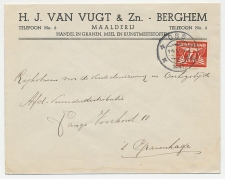 H. J. VAN VUGT & Zn. - BERGHEM
TELEFOON No. 6 MAALDERIJ TELEFOON No. 6
HANDEL IN GRANEN, MEEL EN KUNSTMESTSTOFFEN
OSS
NEDERLAND
Rijksbureau voor de Voedselvoorziening in Oorlogstijd
Afd.
Lange Voorhout
's Gravenhage